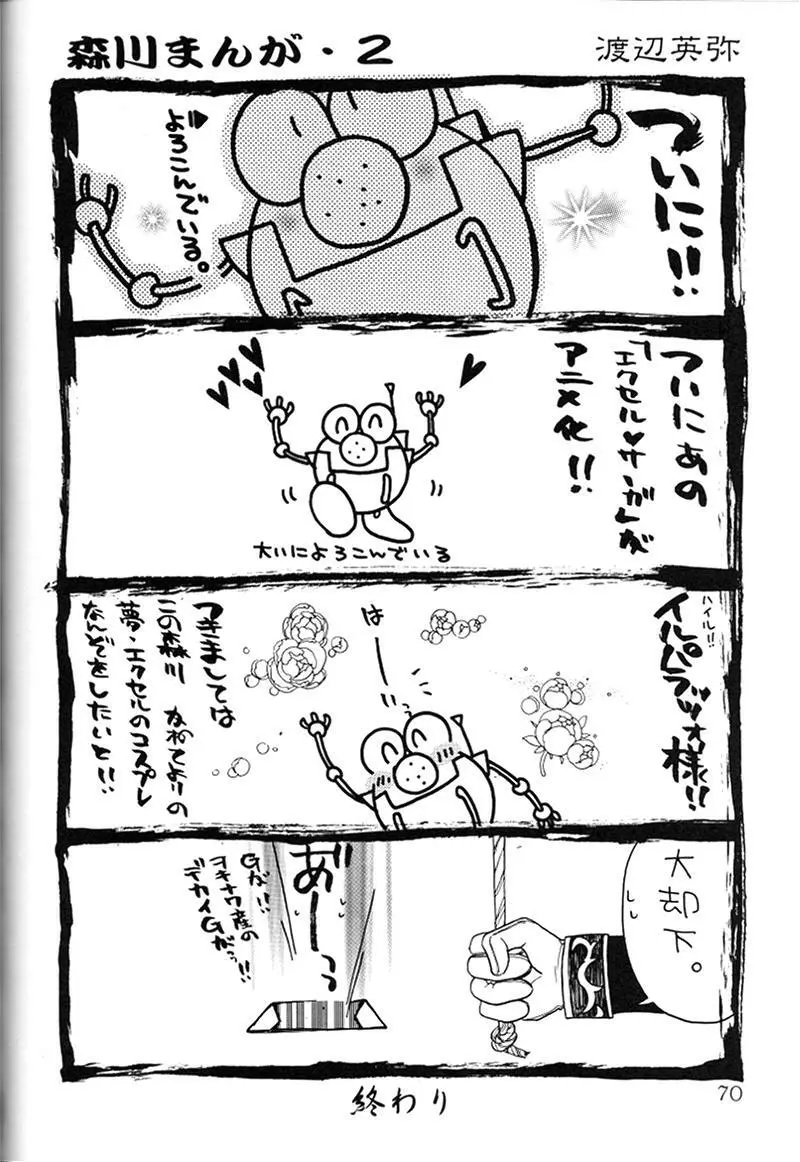 森川まんが・2
渡辺英弥
ついに!!
♥よろこんでいる。
ついにあの
「エクセル♥サーガ」が
アニメ化!!
大いによろこんでいる
ハイル!!
イルパラッツォ様!!
はーいっ
つきましては
この森川 かねてよりの
夢・エクセルのコスプレ
なんぞをしたいと!!
大却下。
あ゛ーっっ
Gが!!
オキナワ産の
デカイGがっ!!
終わり
70